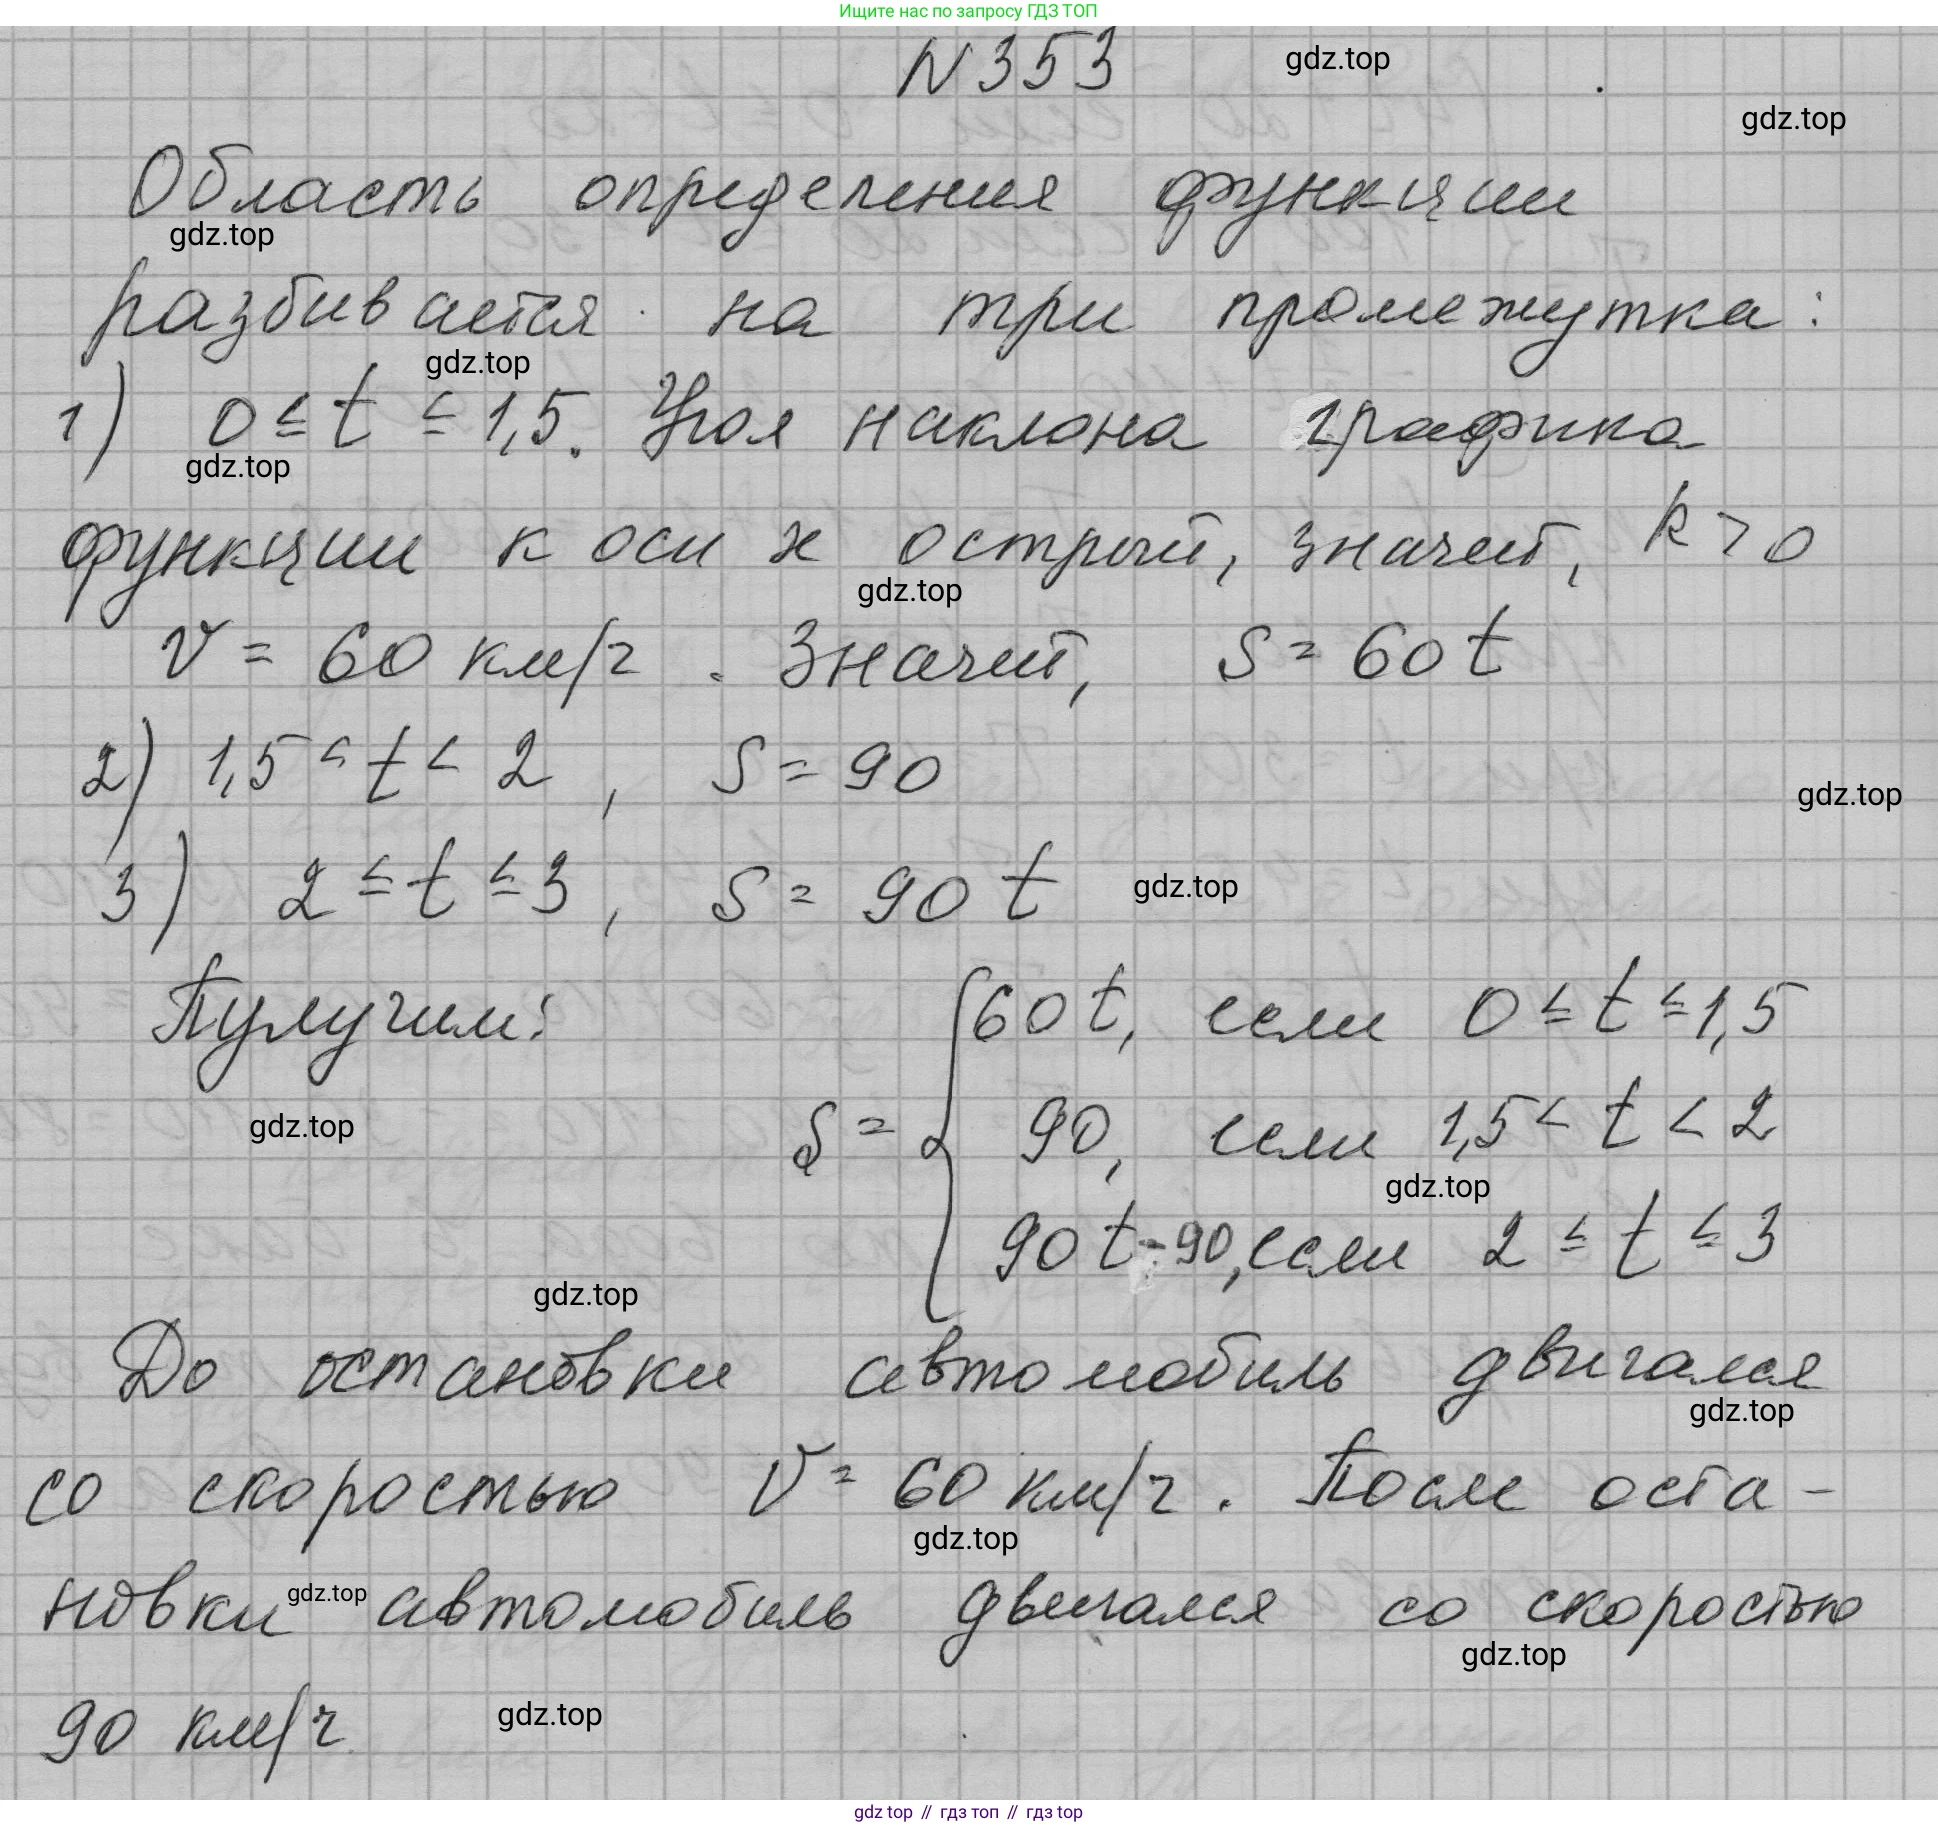 Ищите нас по запросу ГДЗ ТОП
N 353
gdz.top
gdz.top
Область определения функции
gdz.top
разбивается на три промежутка:
gdz.top
1) 0 ≤ t ≤ 1,5. Угол наклона графика
gdz.top
функции к оси x острый, значит, k > 0
gdz.top
V = 60 км/ч. Значит, S = 60 t
2) 1,5 < t < 2, S = 90
gdz.top
3) 2 ≤ t ≤ 3, S = 90 t
gdz.top
Пулучим:
60 t, если 0 ≤ t ≤ 1,5
gdz.top
S = { 90, если 1,5 < t < 2
gdz.top
90 t - 90, если 2 ≤ t ≤ 3
gdz.top
До остановки автомобиль двигался
gdz.top
со скоростью V = 60 км/ч. После оста-
gdz.top
новки автомобиль двигался со скоростью
gdz.top
gdz.top
90 км/ч
gdz.top
gdz top // гдз топ // гдз top